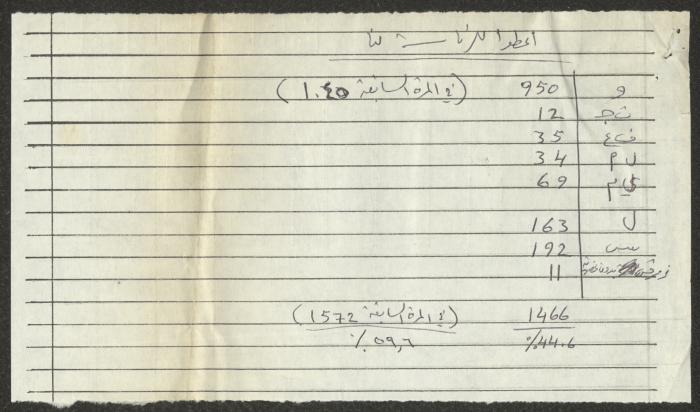 اعطوا للرئاسة لنا
و 950 (في المرة السابقة 1.40)
ث ج 12
ف ع 35
ل م 34
69
ل 163
س 192
11
1466 (في المرة السابقة 1572)
%44.6 %٥٩,٦